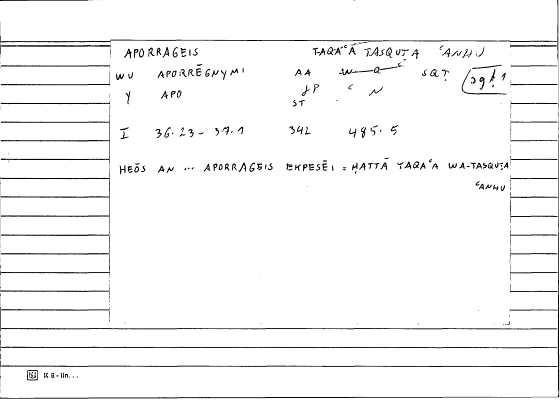 APORRAGEIS TAQAʿĀ TASQUṬA ʿANHU
WU APORRĒGNYMI AA W–Q–ʿ SQṬ sqṭ 1
Y APO ʿN
ST
I 36.23–37.1 342 485.5
HEŌS AN ... APORRAGEIS EKPESĒI = ḤATTĀ TAQAʿA WA-TASQUṬA
ʿANHU
K 6 - lin...